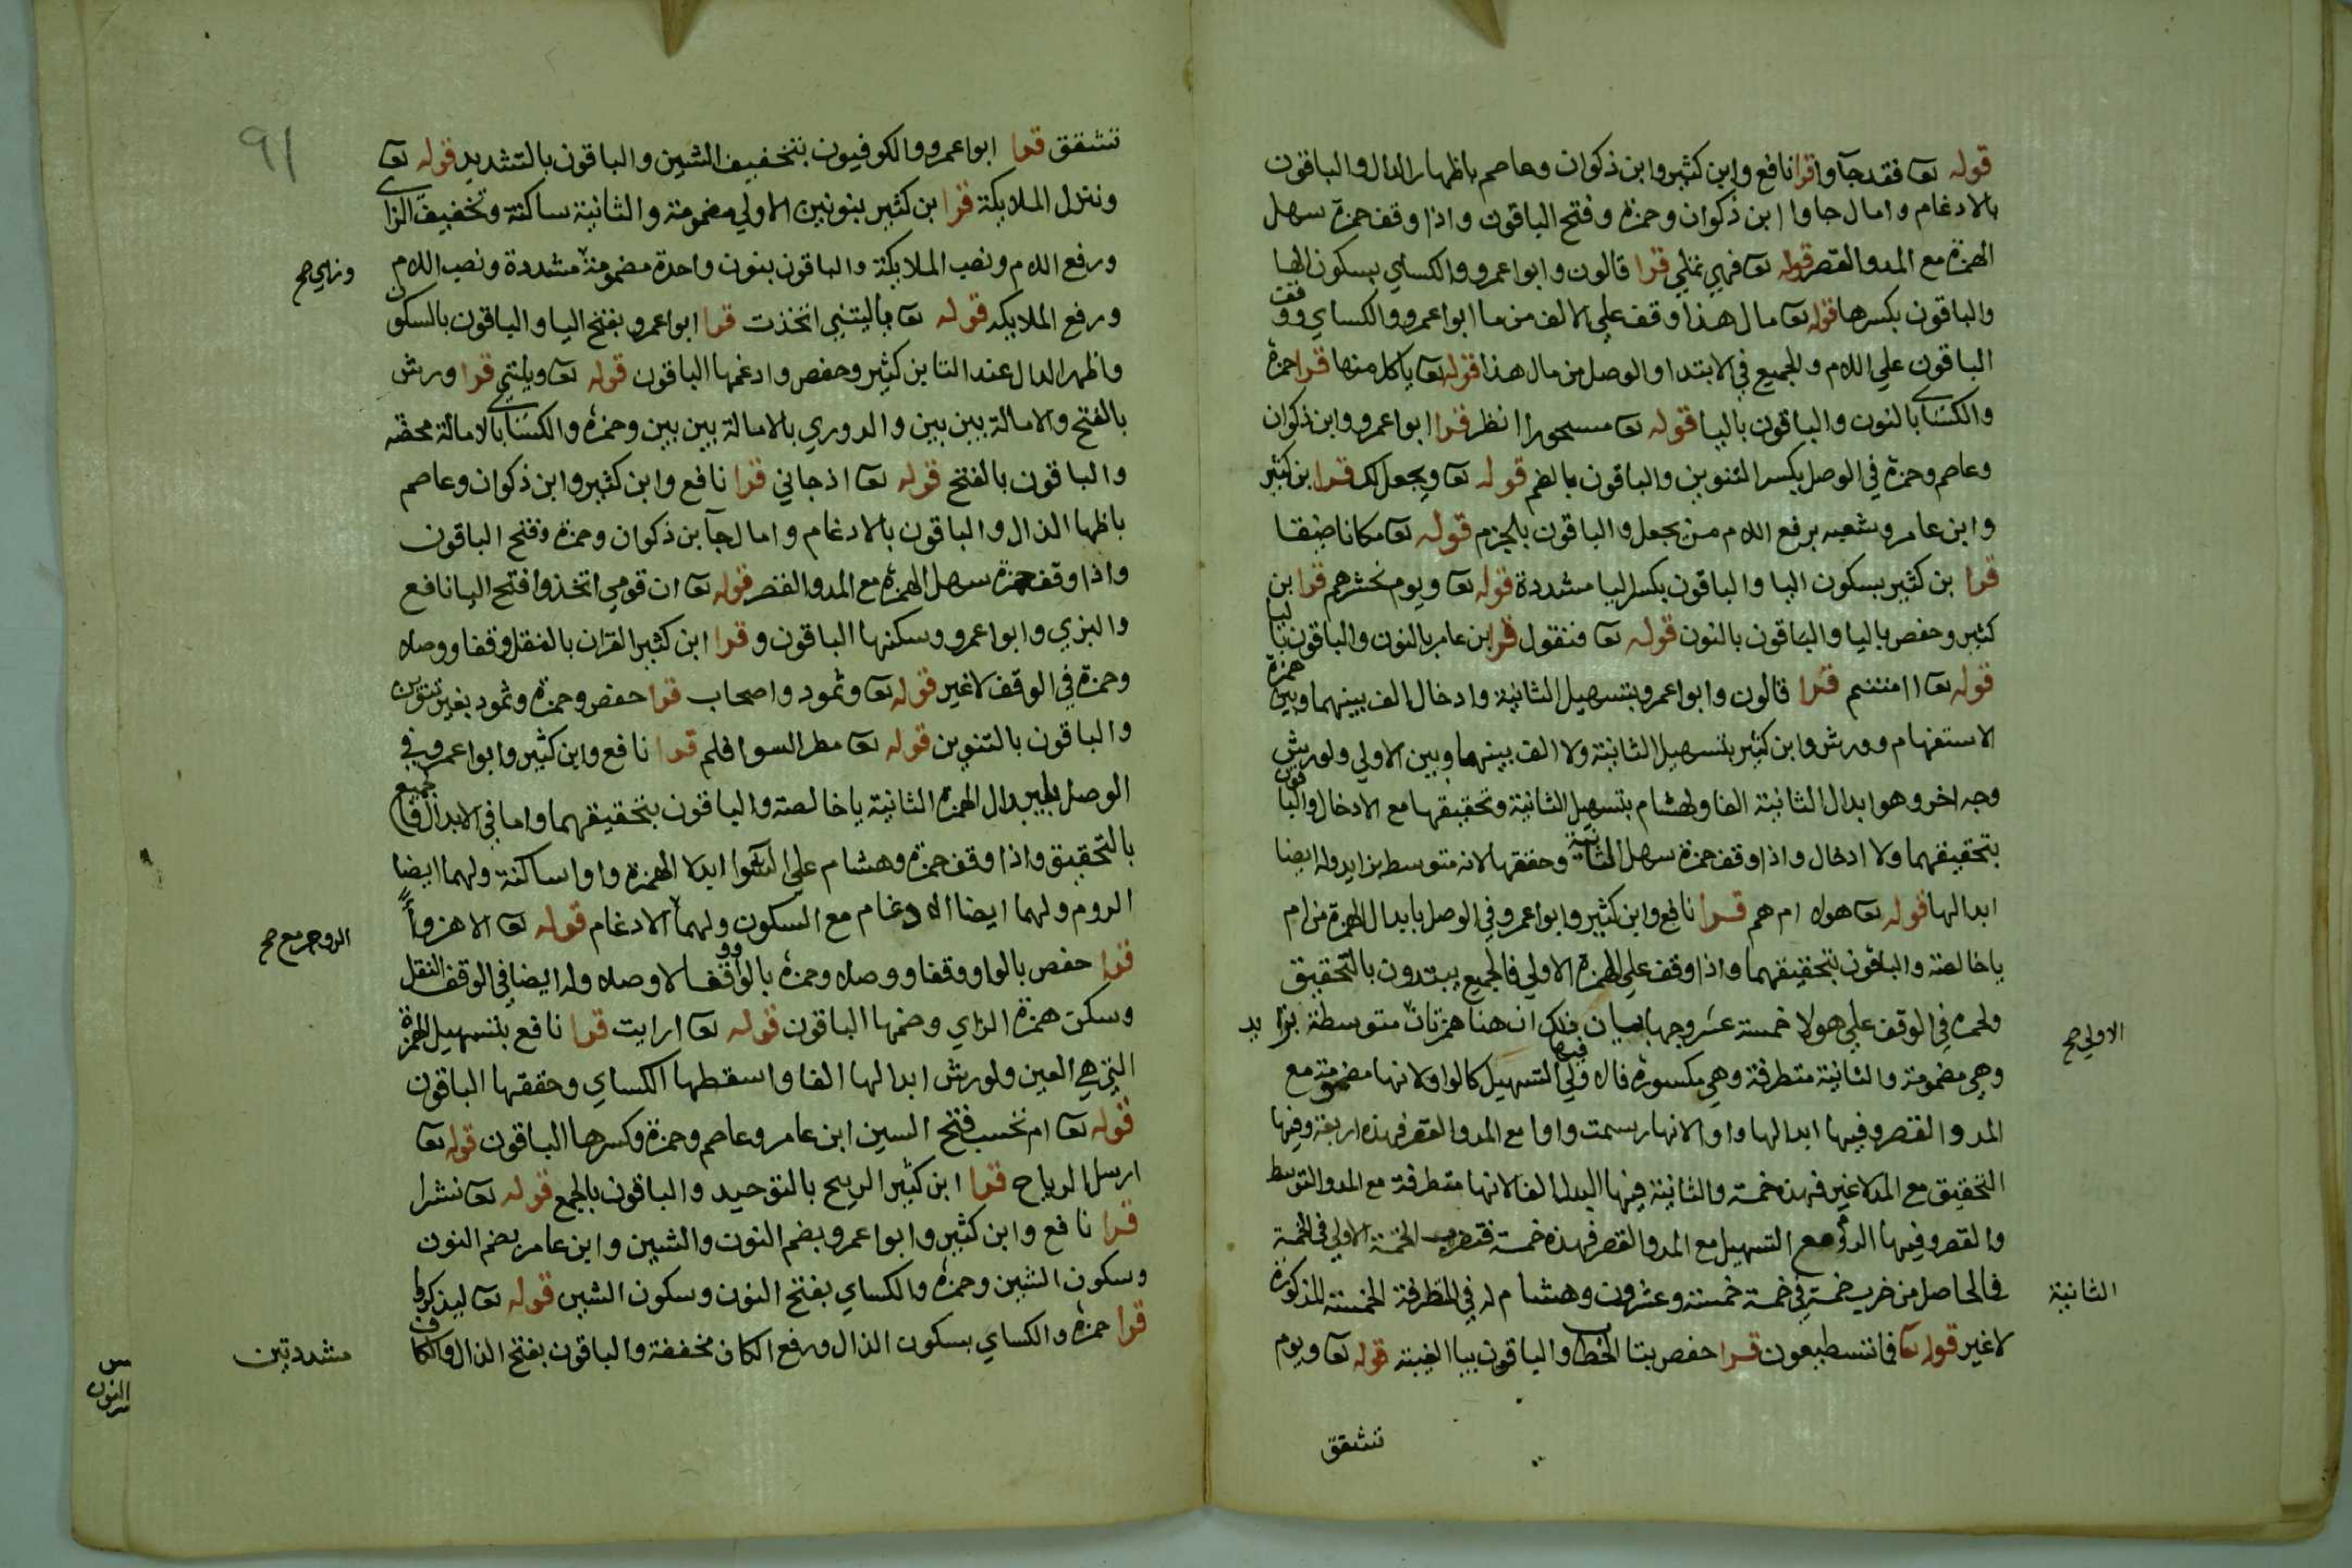 قوله تعا فقد جآوا قرا نافع وابن كثير وابن ذكوان وعاصم باظهار الدال والباقون
بالادغام وامال جاوا ابن ذكوان وحمزة وفتح الباقون واذا وقف حمزة سهل
الهمزة مع المد والقصر قوله تعا فهي تملي قرا قالون وابوا عمرو والكساي بسكون الها
والباقون بكسرها قوله تعا مال هذا وقف علي الالف من ما ابوا عمرو والكساي ووقف
الباقون علي اللام والجميع في الابتدا والوصل من مال هذا قوله تعا ياكل منها قرا حمزة
والكساي بالنون والباقون باليا قوله تعا مسحورا انظر قرا ابوا عمرو وابن ذكوان
وعاصم وحمزة في الوصل بكسر التنوين والباقون بالضم قوله تعا ويجعل لك قرا بن كثير
وابن عامر وشعبه برفع اللام من يجعل والباقون بالجزم قوله تعا مكانا ضيقا
قرا بن كثير بسكون اليا والباقون بكسر اليا مشددة قوله تعا ويوم نحشرهم قرا بن
كثير وحفص باليا والباقون بالنون قوله تعا فنقول قرا بن عامر بالنون والباقون باليا
قوله تعا اانتم قرا قالون وابوا عمرو بتسهيل الثانية وادخال الف بينهما وبين همزة
الاستفهام وورش وابن كثير بتسهيل الثانية ولا الف بينهما وبين الاولي ولورش
وجه اخر وهو ابدال الثانية الفا ولهشام بتسهيل الثانية وتحقيقها مع الادخال والباقون
بتحقيقهما ولا ادخال واذا وقف حمزة سهل الثانية وحققها لانه متوسط بزايد وله ايضا
ابدالها قوله تعا هولا ام هم قرا نافع وابن كثير وابوا عمرو في الوصل بابدال الهمزة من ام
يا خالصة والباقون بتحقيقهما واذا وقف علي الهمزة الاولي فالجميع يبتدون بالتحقيق
ولحمزة في الوقف علي هولا خمسة عشر وجها بيان ذلك ان هنا همزتان متوسطة بزايد
الاولي صح
وهي مضمومة والثانية متطرفة وهي مكسورة فالاولي فيها التسهيل كالواو لانها مضمومة مع
المد والقصر وفيها ابدالها واوا لانها رسمت واوا مع المد والقصر فهذه اربعة وفيها
التحقيق مع المد لا غير فهذه خمسة والثانية فيها البدل الفا لانها متطرفة مع المد والتوسط
والقصر وفيها الروم مع التسهيل مع المد والقصر فهذه خمسة فتضرب الخمسة الاولي في الخمسة
الثانية
فالحاصل من ضرب خمسة في خمسة خمسة وعشرون وهشام له في المتطرفة الخمسة المذكورة
لا غير قوله تعا فما تستطيعون قرا حفص بتا الخطاب والباقون بيا الغيبة قوله تعا ويوم
تشقق
٩١
تشقق قرا ابوا عمرو والكوفيون بتخفيف الشين والباقون بالتشديد قوله تعا
ونتزل الملايكة قرا بن كثير بنونين الاولي مضمومة والثانية ساكنة وتخفيف الزاي
ورفع اللام ونصب الملايكة والباقون بنون واحدة مضمومة مشددة ونصب اللام
وزاي صح
ورفع الملايكه قوله تعا ياليتني اتخذت قرا ابوا عمرو بفتح اليا والباقون بالسكون
واظهر الدال عند التا بن كثير وحفص وادغمها الباقون قوله تعا ويلتي قرا ورش
بالفتح والامالة بين بين والدوري بالامالة بين بين وحمزة والكساي بالامالة محضه
والباقون بالفتح قوله تعا اذ جاني قرا نافع وابن كثير وابن ذكوان وعاصم
باظها الذال والباقون بالادغام وامال جآ بن ذكوان وحمزة وفتح الباقون
واذا وقف حمزة سهل الهمزة مع المد والقصر قوله تعا ان قومي اتخذوا فتح اليا نافع
والبزي وابوا عمرو وسكنها الباقون وقرا ابن كثير القران بالنقل وقفا ووصلا
وحمزة في الوقف لا غير قوله تعا وثمود واصحاب قرا حفص وحمزة وثمود بغير تنوين
والباقون بالتنوين قوله تعا مطر السوا فلم قرا نافع وابن كثير وابوا عمرو في
الوصل بابدال الهمزة الثانية يا خالصة والباقون بتحقيقهما واما في الابدال فالجميع
بالتحقيق واذا وقف حمزة وهشام علي السوا ابدلا الهمزة واوا ساكنة ولهما ايضا
الروم ولهما ايضا الادغام مع السكون ولهما الادغام قوله تعا الا هزوا
الروم مع صح
قرا حفص بالواو وقفا ووصلا وحمزة بالواو وقفا لا وصلا وله ايضا في الوقف النقل
وسكن حمزة الزاي وضمها الباقون قوله تعا ارايت قرا نافع بتسهيل الهمزة
التي هي العين ولورش ابدالها الفا واسقطها الكساي وحققها الباقون
قوله تعا ام تحسب فتح السين ابن عامر وعاصم وحمزة وكسرها الباقون قوله تعا
ارسل الرياح قرا ابن كثير الريح بالتوحيد والباقون بالجمع قوله تعا نشرا
قرا نافع وابن كثير وابوا عمرو بضم النون والشين وابن عامر بضم النون
وسكون الشين وحمزة والكساي بفتح النون وسكون الشين قوله تعا ليذكروا
قرا حمزة والكساي بسكون الذال ورفع الكاف مخففة والباقون بفتح الذال والكاف
مشددتين